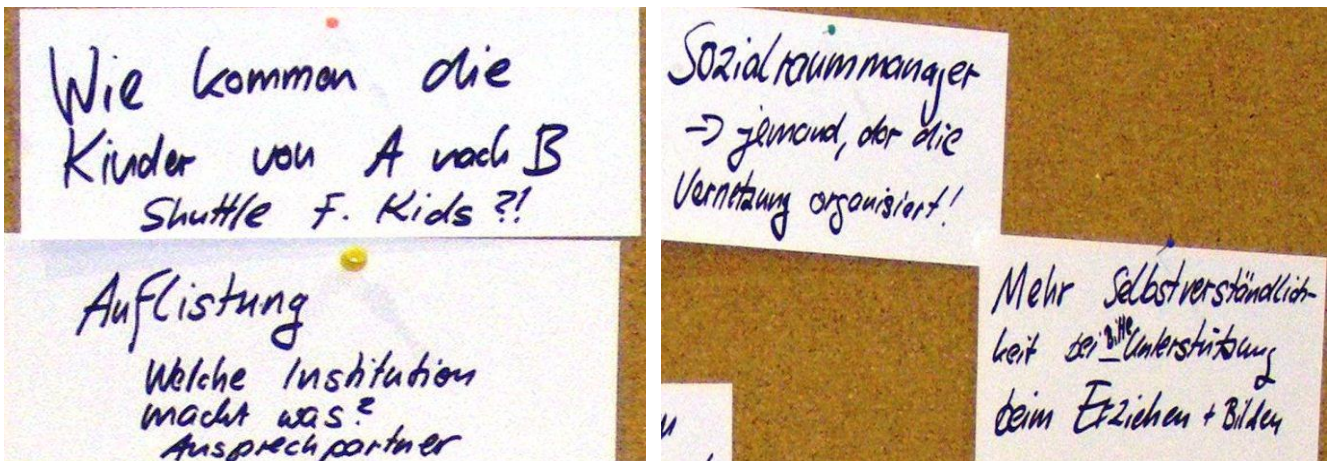 Wie kommen die
Kinder von A nach B
Shuttle F. Kids ?!
Auflistung
Welche Institution
macht was?
Ansprechpartner
Sozialraummanager
→ jemand, der die
Vernetzung organisiert!
Mehr Selbstverständlich-
keit bei Bitte Unterstützung
beim Erziehen + Bilden